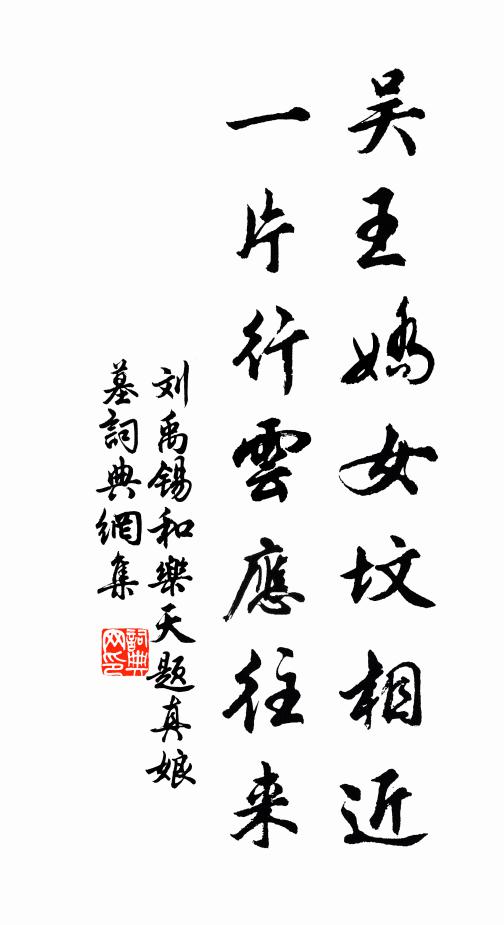 吴王嬌女坟相近
一片行雲應往来
刘禹锡和樂天题真娘
墓詞典網集
詞典
网印